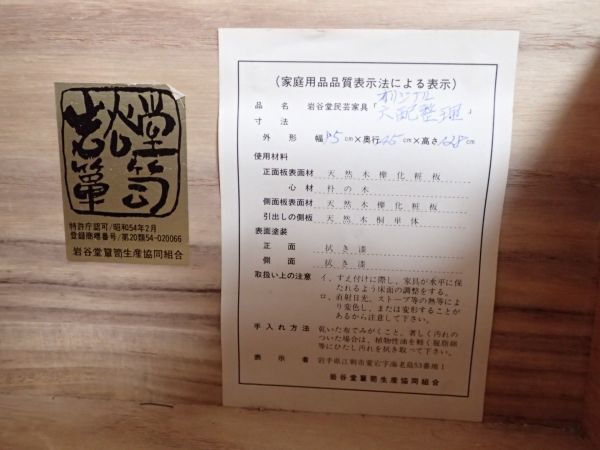 岩谷堂箪笥
特許庁認可/昭和54年2月
登録商標番号/第20類54-020066
岩谷堂簞笥生産協同組合
(家庭用品品質表示法による表示)
品名 岩谷堂民芸家具「オリジナル
六配整理」
寸法
外形 幅 cm×奥行 45cm×高さ 128cm
使用材料
正面板表面材 天然木欅化粧板
心材 朴の木
側面板表面材 天然木欅化粧板
引出しの側板 天然木桐単体
表面塗装
正面 拭き漆
側面 拭き漆
取扱い上の注意 イ、すえ付けに際し、家具が水平に保
たれるよう床面の調整をする。
ロ、直射日光、ストーブ等の熱等によ
り変色し、または変形することが
あるから注意して下さい。
手入れ方法 乾いた布でみがくこと。著しく汚れの
ついた場合は、植物性油を軽く脱脂綿
等にひたし汚れを拭き取って下さい。
表示者 岩手県江刺市愛宕字海老島53番地1
岩谷堂簞笥生産協同組合